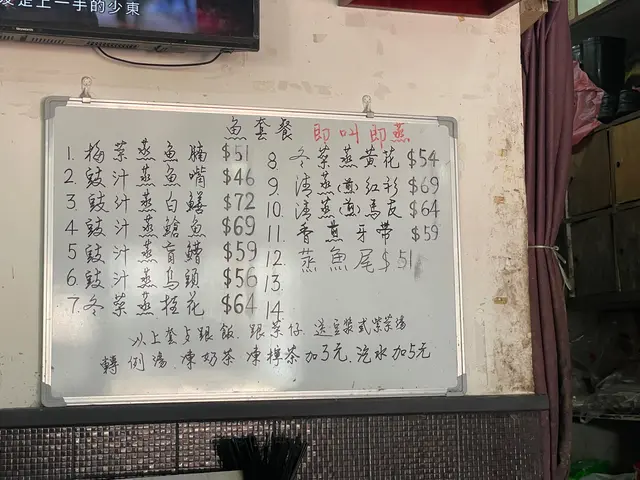 是上一手的少東
魚套餐 即叫即蒸
1. 梅菜蒸魚腩 $51
2. 豉汁蒸魚嘴 $46
3. 豉汁蒸白鱔 $72
4. 豉汁蒸鯧魚 $69
5. 豉汁蒸盲鰽 $59
6. 豉汁蒸烏頭 $56
7. 冬菜蒸桂花 $64
8. 冬菜蒸黃花 $54
9. 清蒸(煎)紅衫 $69
10. 清蒸(煎)馬友 $64
11. 香煎牙帶 $59
12. 蒸魚尾 $51
13.
14.
以上套歺跟飯.跟菜仔 送豆漿或紫菜湯
轉例湯.凍奶茶.凍檸茶加3元.汽水加5元